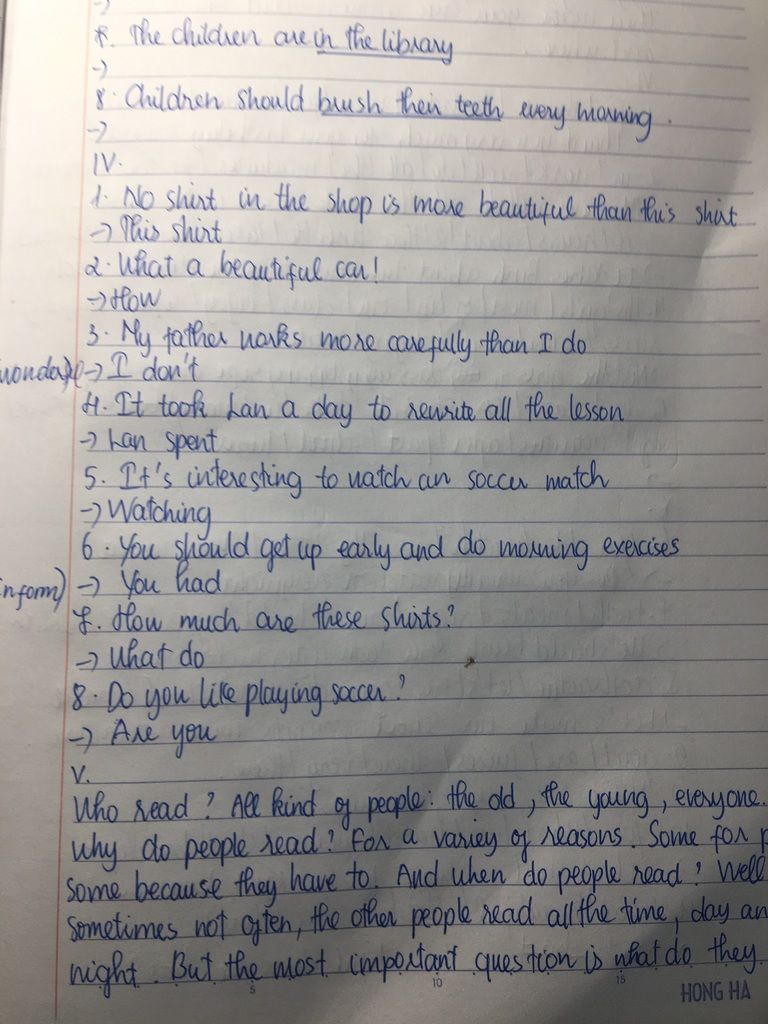 ->
7. The children are in the library
->
8. Children should brush their teeth every morning.
->
IV.
1. No shirt in the shop is more beautiful than this shirt
-> This shirt
2. What a beautiful car!
-> How
3. My father works more carefully than I do
-> I don't
4. It took Lan a day to rewrite all the lesson
-> Lan spent
5. It's interesting to watch an soccer match
-> Watching
6. You should get up early and do morning exercises
inform) -> You had
7. How much are these shirts?
-> What do
8. Do you like playing soccer?
-> Are you
V.
Who read? All kind of people: the old, the young, everyone.
Why do people read? For a variey of reasons. Some for p
some because they have to. And when do people read? Well
sometimes not often, the other people read all the time, day an
night. But the most important question is what do they
5 10 15
HONG HA